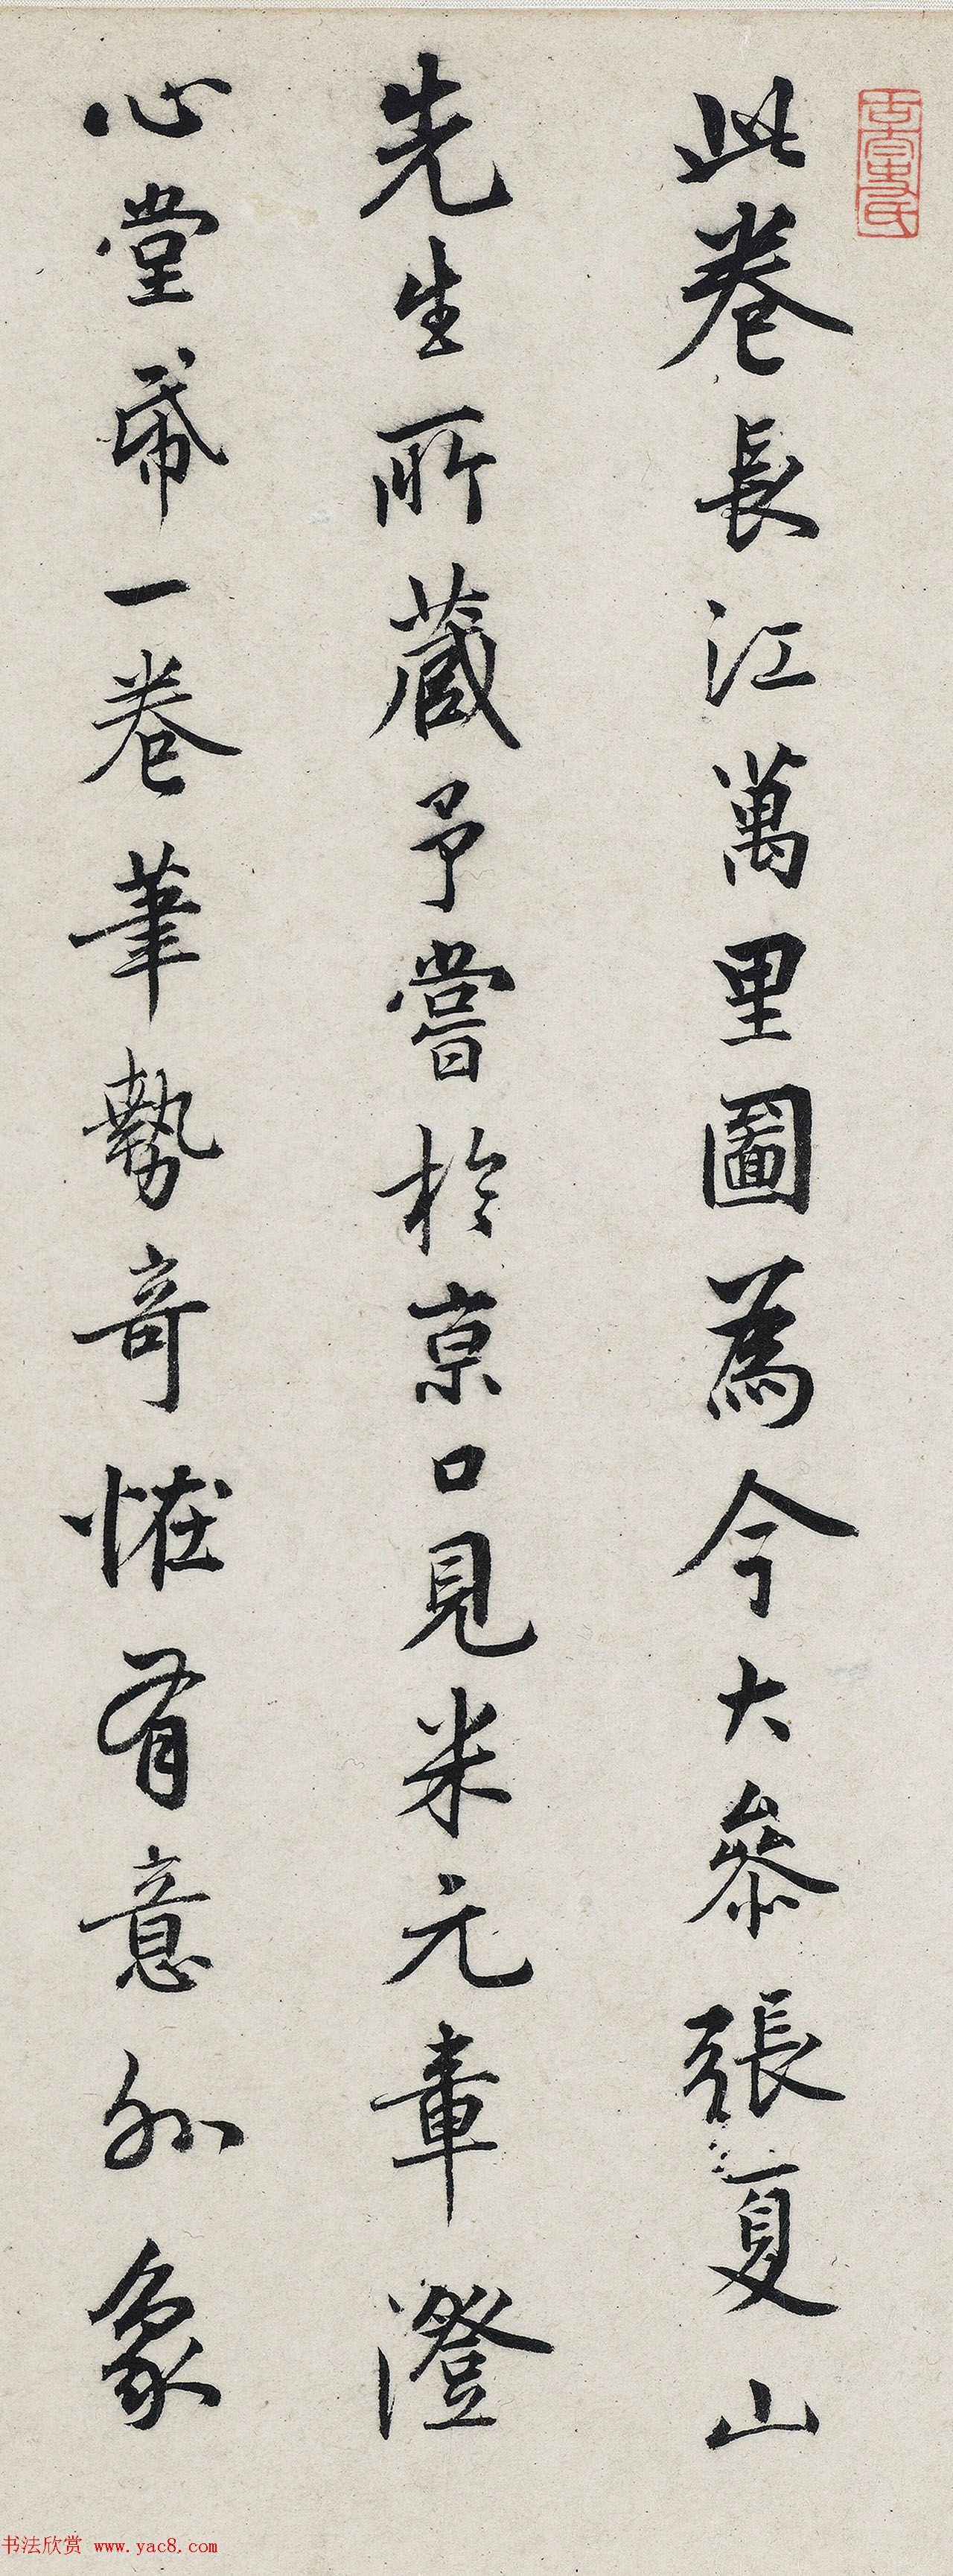 此卷長江萬里圖為今大參張夏山
先生所蔵予嘗於京口見米元章澄
心堂帋一卷筆勢奇恠有意外象
书法欣赏 www.yac8.com